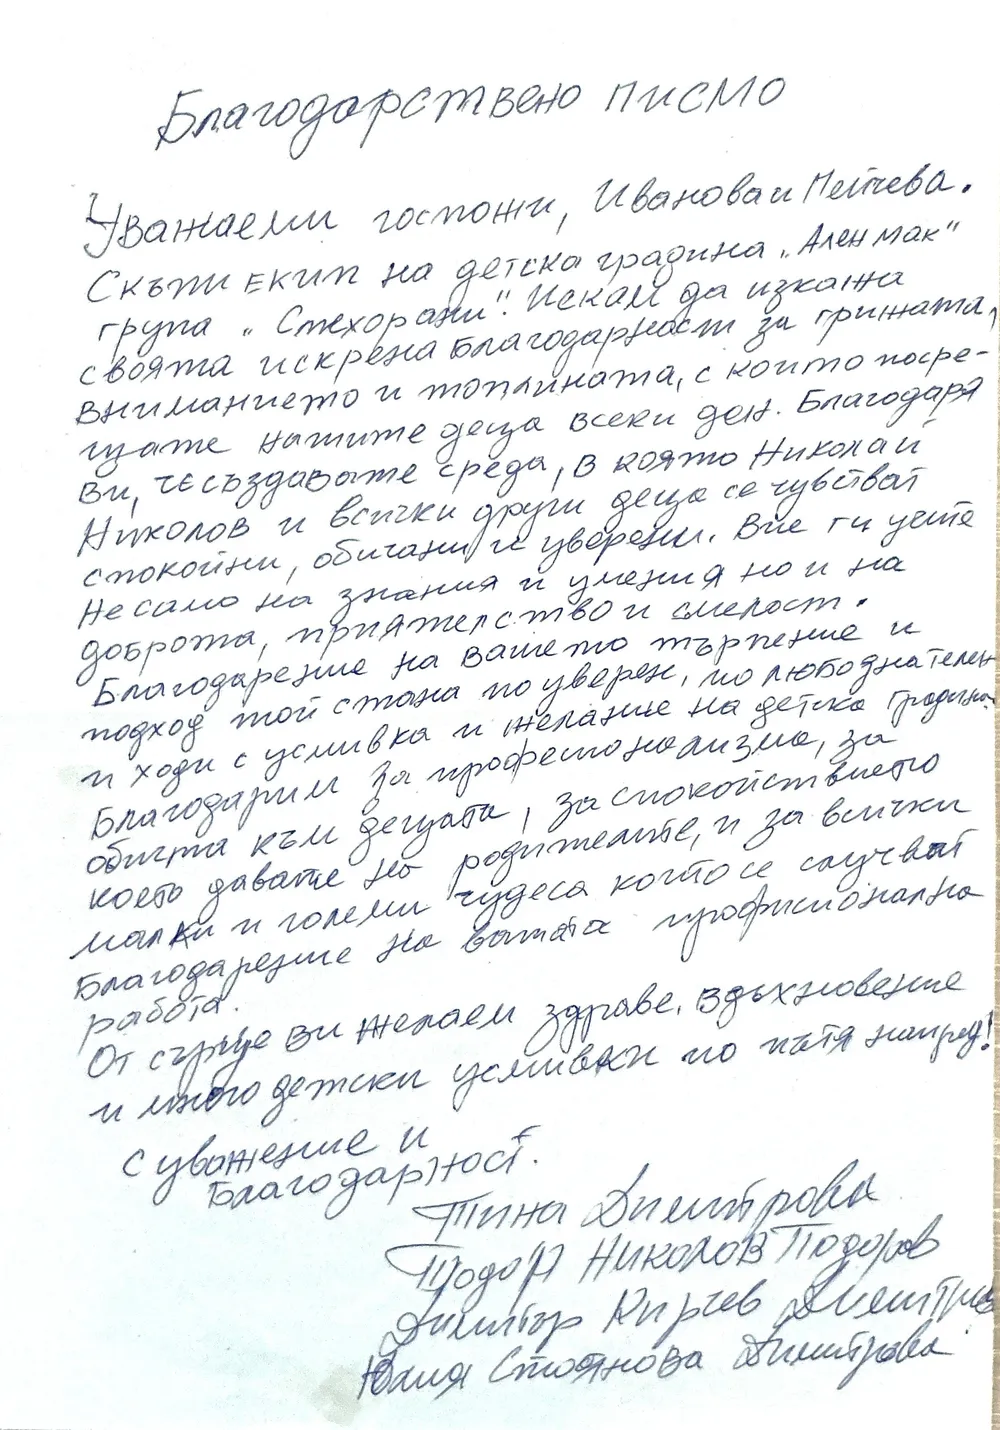 Благодарствено писмо
Уважаеми госпожи, Иванова и Пейчева.
Скъпи екип на детска градина „Ален мак“
група „Стехорани“. Искам да изкажа
своята искрена благодарност за грижата,
вниманието и топлината, с които посре-
щате нашите деца всеки ден. Благодаря
Ви, че създавате среда, в която Николай
Николов и всички други деца се чувстват
спокойни, обичани и уверени. Вие ги учите
не само на знания и умения но и на
доброта, приятелство и смелост.
Благодарение на вашето търпение и
подход той стана по уверен, по любознателен
и ходи с усмивка и желание на детска градина.
Благодарим за професионализма, за
обичта към децата, за спокойствието
което давате на родителите, и за всички
малки и големи чудеса които се случват
Благодарение на вашата професионална
работа.
От сърце ви желаем здраве, вдъхновение
и много детски усмивки по пътя напред!
С уважение и
Благодарност.
Тина Димитрова
Тодор Николов Тодоров
Димитър Кирчев Димитров
Юлия Стоянова Димитрова